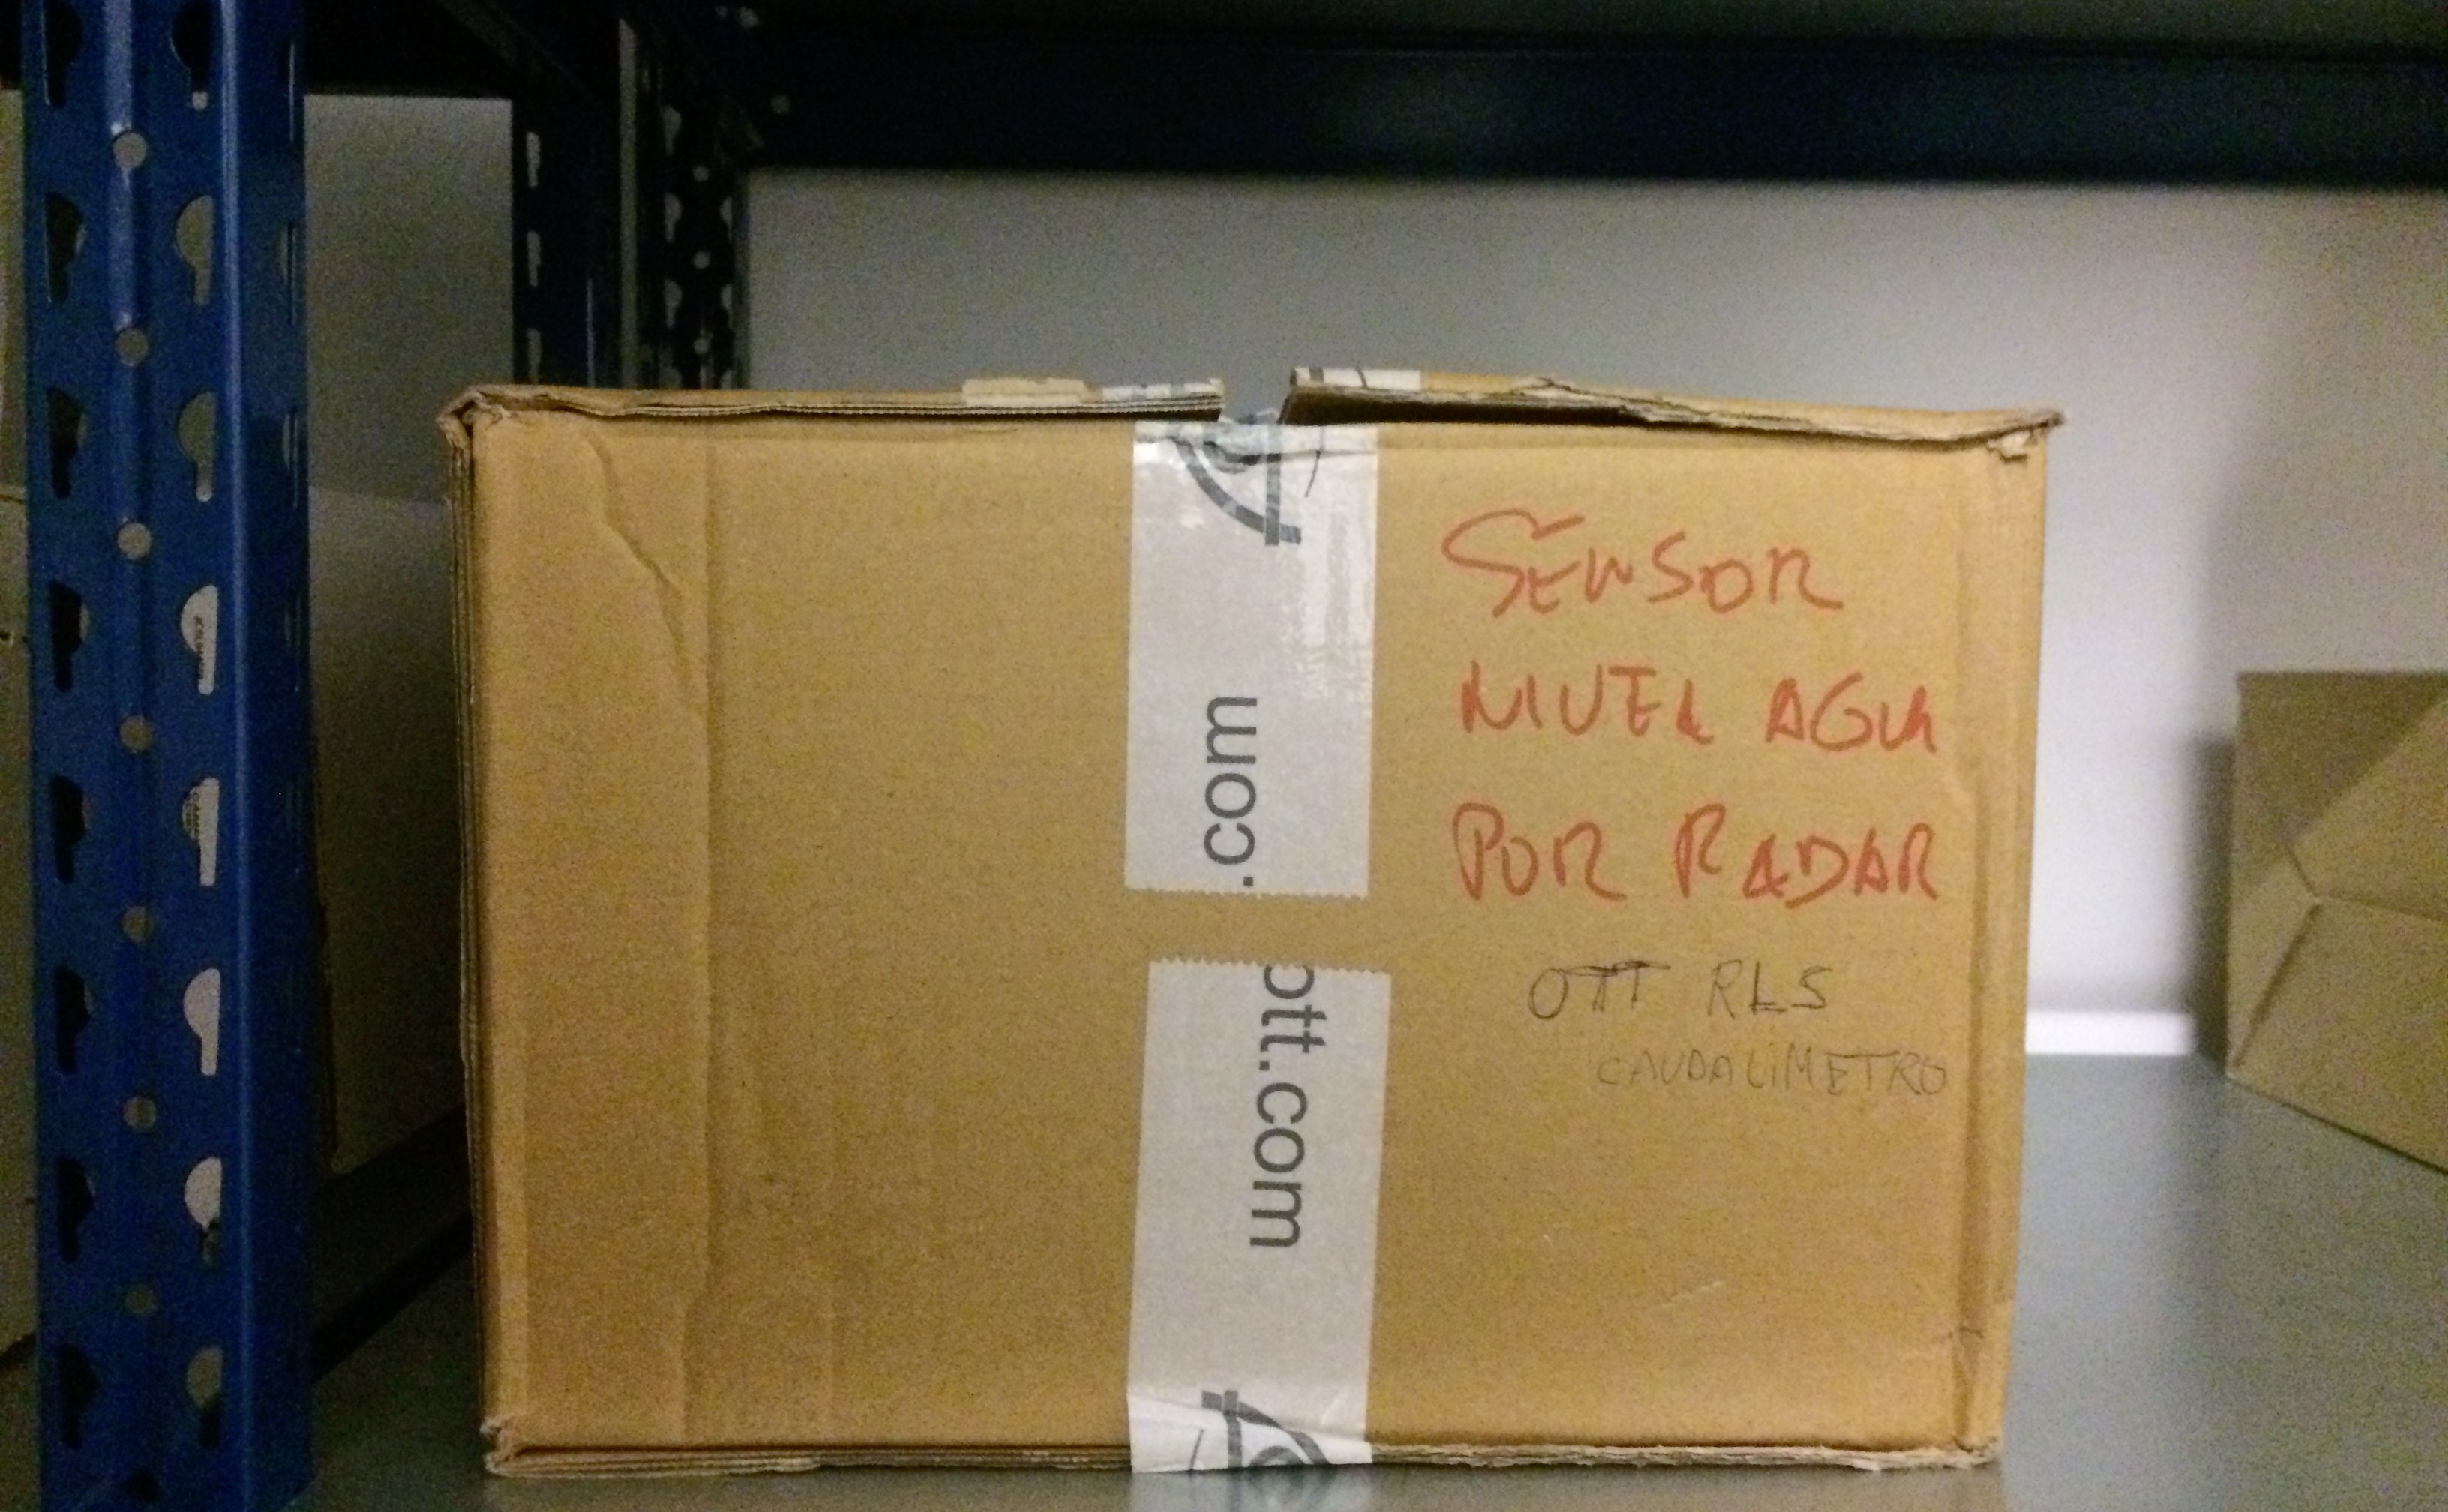 .com
ott.com
SENSOR
NIVEL AGUA
POR RADAR
OTT RLS
CAUDALIMETRO